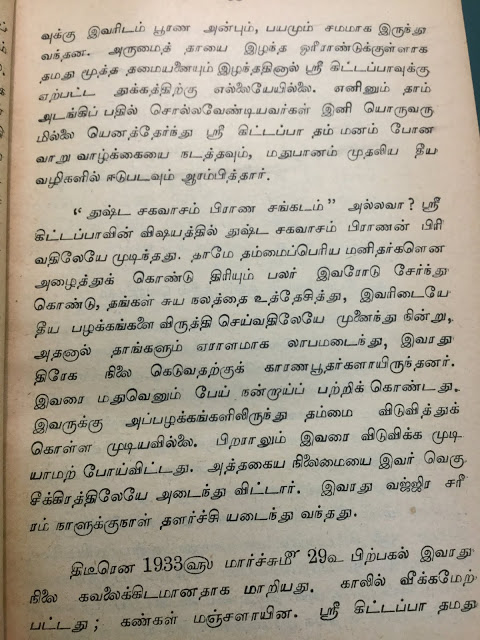 வுக்கு இவரிடம் பூரண அன்பும், பயமும் சமமாக இருந்து
வந்தன. அருமைத் தாயை இழந்த ஓரிராண்டுக்குள்ளாக
தமது மூத்த தமையனையும் இழந்ததினால் ஸ்ரீ கிட்டப்பாவுக்கு
ஏற்பட்ட துக்கத்திற்கு எல்லையேயில்லை. எனினும் தாம்
அடங்கிப் பதில் சொல்லவேண்டியவர்கள் இனி யொருவரு
மில்லை யெனத்தேர்ந்து ஸ்ரீ கிட்டப்பா தம் மனம் போன
வாறு வாழ்க்கையை நடத்தவும், மதுபானம் முதலிய தீய
வழிகளில் ஈடுபடவும் ஆரம்பித்தார்.
“ துஷ்ட சகவாசம் பிராண சங்கடம்” அல்லவா? ஸ்ரீ
கிட்டப்பாவின் விஷயத்தில் துஷ்ட சகவாசம் பிராணன் பிரி
வதிலேயே முடிந்தது. தாமே தம்மைப்பெரிய மனிதர்களென
அழைத்துக் கொண்டு திரியும் பலர் இவரோடு சேர்ந்து
கொண்டு, தங்கள் சுய நலத்தை உத்தேசித்து, இவரிடையே
தீய பழக்கங்களை விருத்தி செய்வதிலேயே முனைந்து நின்று,
அதனால் தாங்களும் ஏராளமாக லாபமடைந்து, இவரது
திரேக நிலை கெடுவதற்குக் காரணபூதர்களாயிருந்தனர்.
இவரை மதுவெனும் பேய் நன்றாய்ப் பற்றிக் கொண்டது.
இவருக்கு அப்பழக்கங்களிலிருந்து தம்மை விடுவித்துக்
கொள்ள முடியவில்லை. பிறராலும் இவரை விடுவிக்க முடி
யாமற் போய்விட்டது. அத்தகைய நிலைமையை இவர் வெகு
சீக்கிரத்திலேயே அடைந்து விட்டார். இவரது வஜ்ஜிர சரீ
ரம் நாளுக்குநாள் தளர்ச்சி யடைந்து வந்தது.
திடீரென 1933௵ மார்ச்சு௴ 29௳ பிற்பகல் இவரது
நிலை கவலைக்கிடமானதாக மாறியது. காலில் வீக்கமேற்
பட்டது ; கண்கள் மஞ்சளாயின. ஸ்ரீ கிட்டப்பா தமது